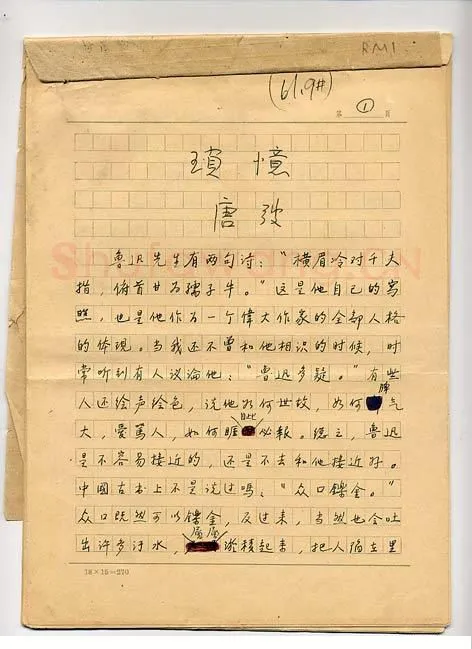 RM1
(61.9#)
第 ① 页
瑣憶
唐弢
魯迅先生有两句诗："横眉冷对千夫
指，俯首甘为孺子牛。"这是他自己的写
照，也是他作为一个偉大作家的全部人格
的体现。当我还不曾和他相识的时候，时
常听到有人议論他："魯迅多疑。"有些
人还绘声绘色，说他如何世故，如何脾气
大，愛罵人，如何睚眦必報。总之，魯迅
是不容易接近的，还是不去和他接近好。
中國古书上不是说过嗎："众口鑠金。"
众口既然可以鑠金，反过来，当然也会吐
出许多汙水，淤積起来，把人陷在里
18×15=270